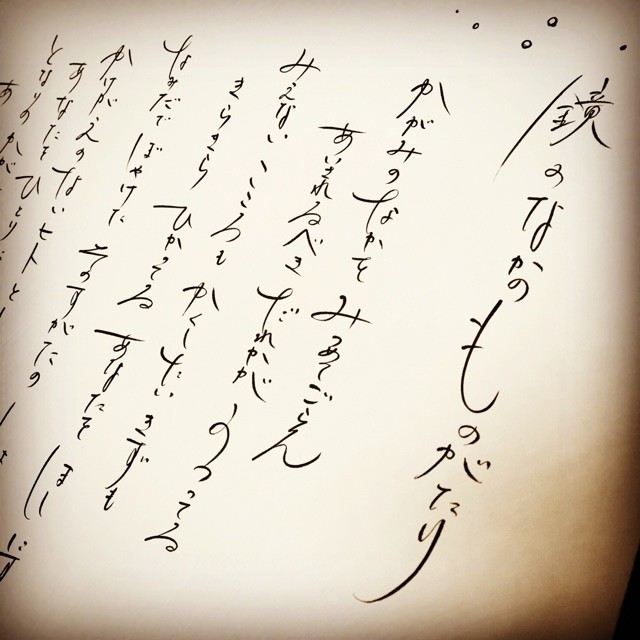 鏡のなかのものがたり
かがみのなかを みつめてごらん
あいされるべき だれかが うつってる
みえない こころも かくしたい きずも
きらきら ひかってる あなたを
なみだで ぼやけた そのすがたの
かけがえのない ヒト
あなたを ひとり
となりの かが
あ